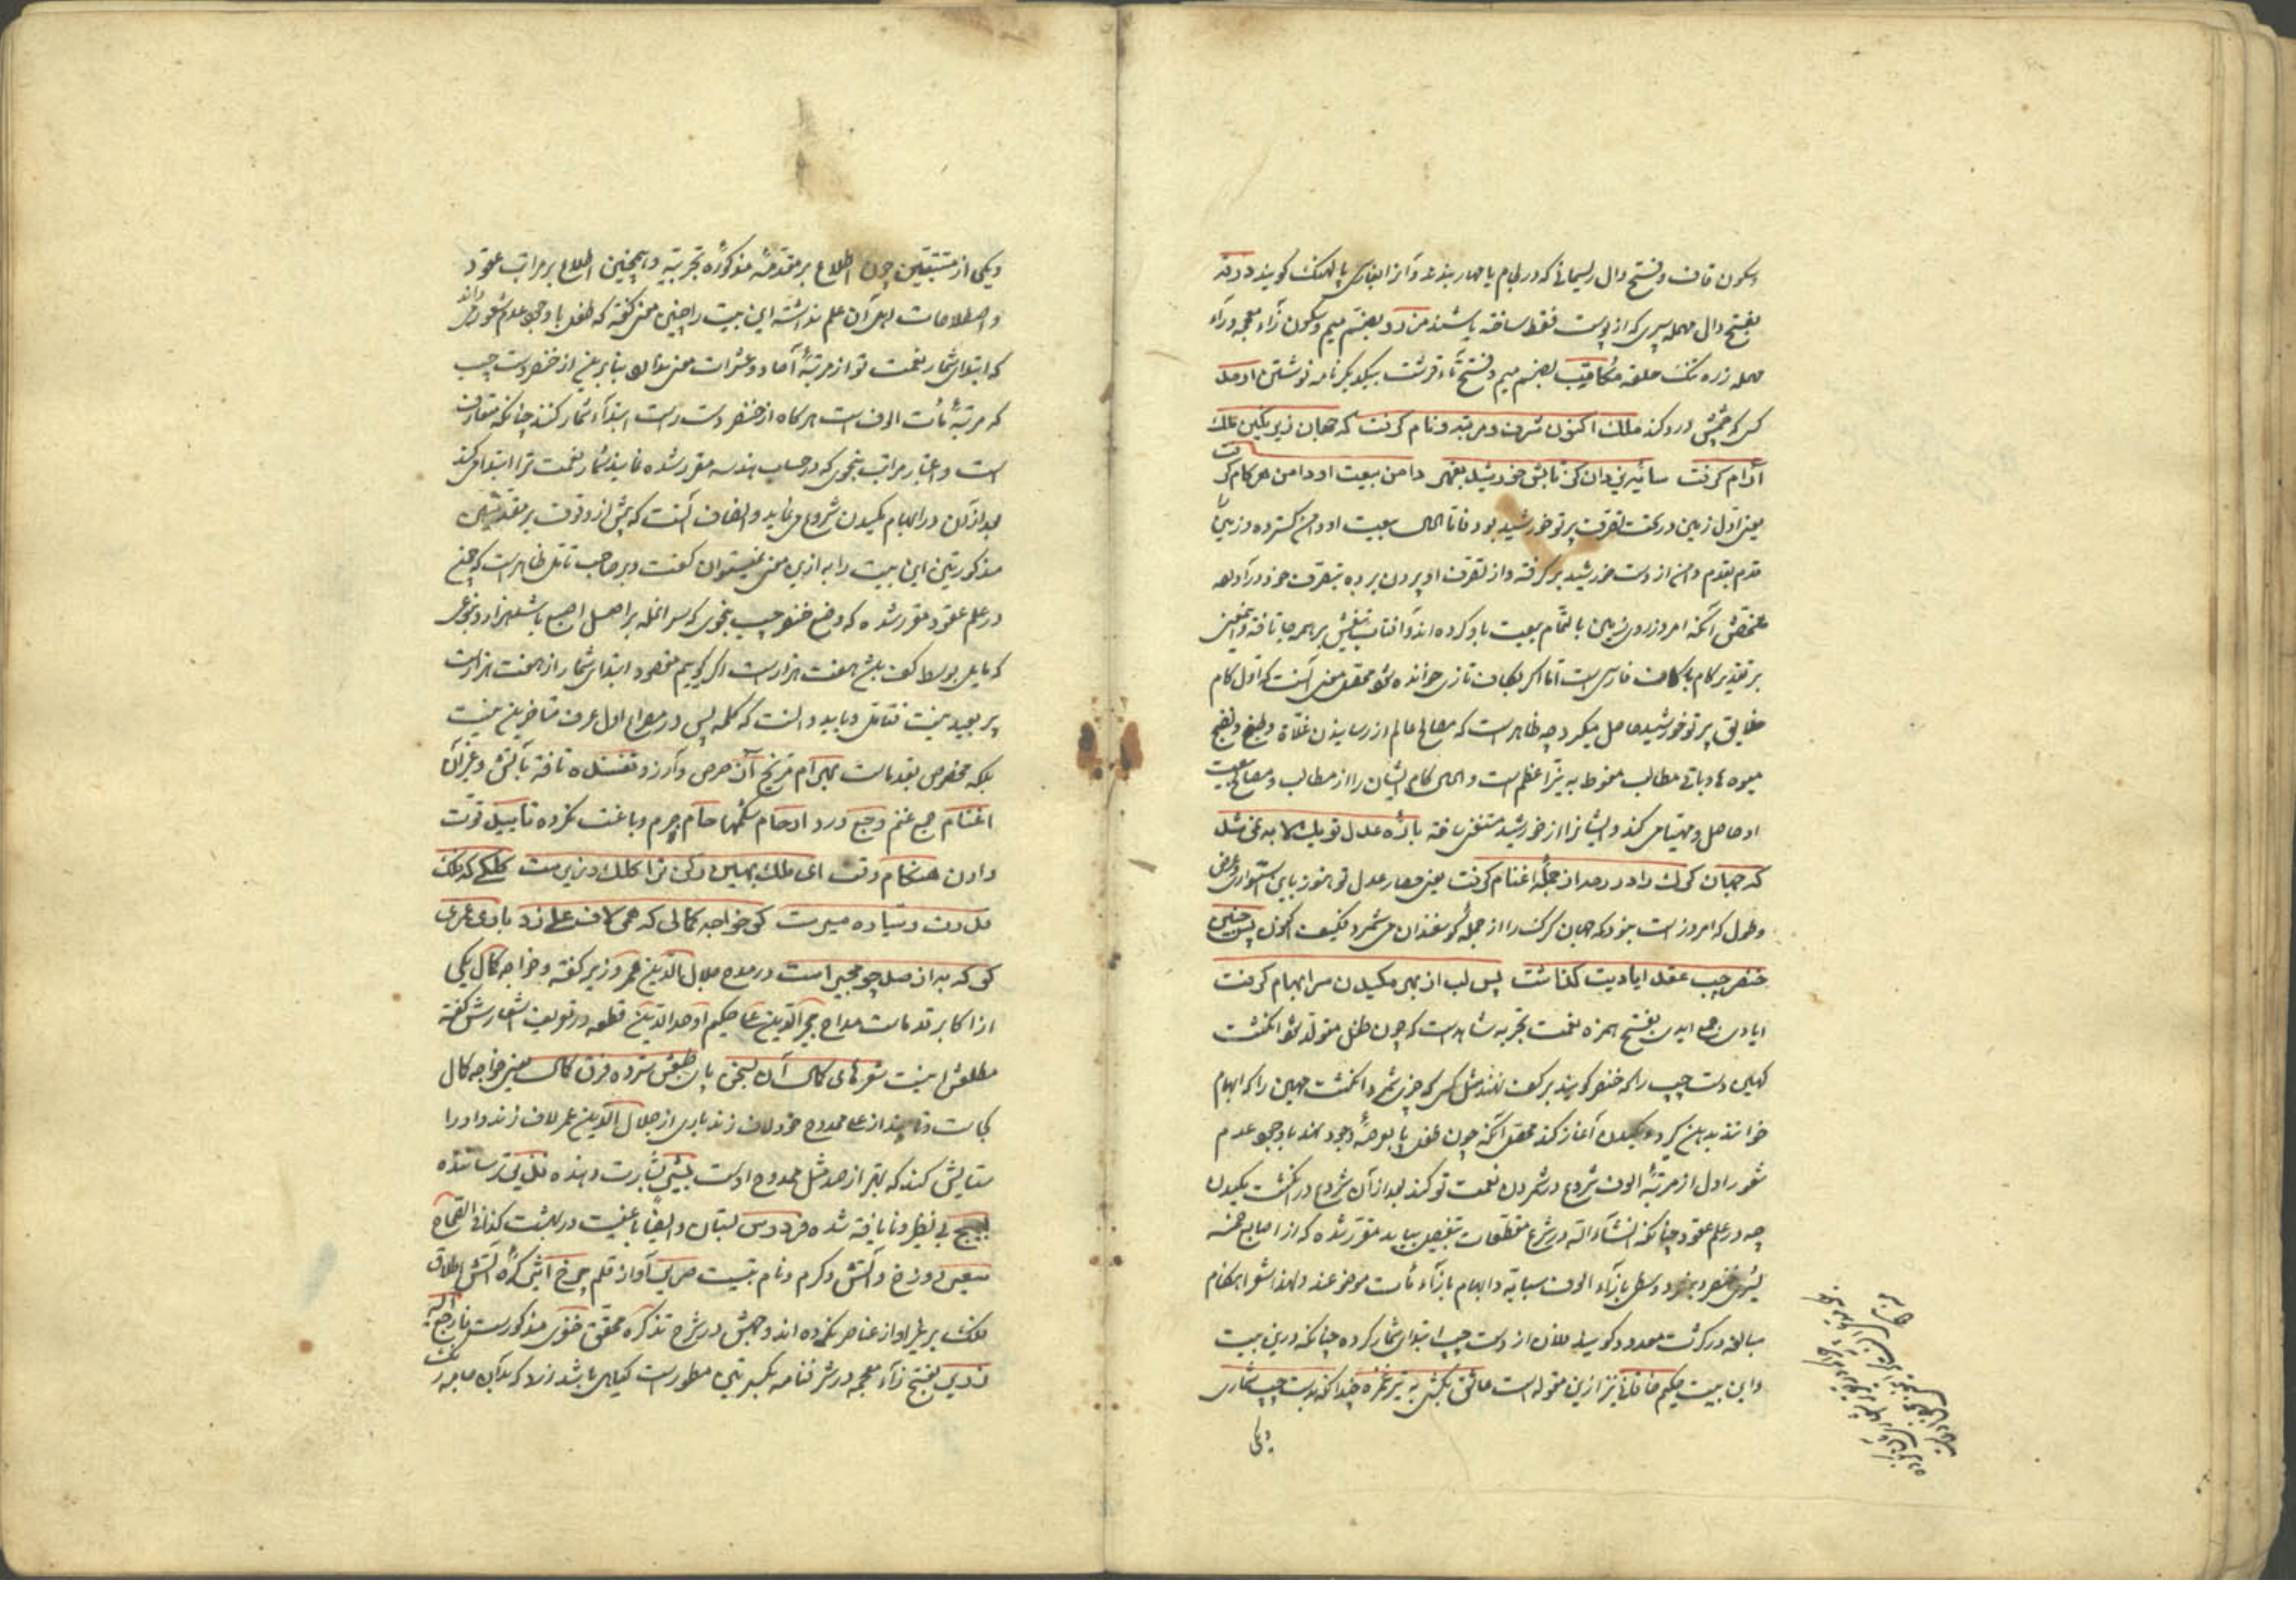 وسکون قاف وفتح دال ریسمانی که در لجام یا مهار بندند وآنرا بفارسی پالهنگ کویند درقه
بفتح دال مهمله سپری که از پوست فقط ساخته باشند مزرد بضم میم وسکون زآء معجمه ورآء
مهمله زره تنک حلقه مکاتیب بضم میم وفتح تآء قرشت بیکدیکر نامه نوشتن ارمد
کسی که چشمش درد کند ملک اکنون شرف ومرتبه ونام کرفت که جهان زیر نکین ملک
آرام کرفت سائیه یزدان کز تابش خورشید بقهر دامن بیعت او دامن هر کام کرفت
یعنی اول زمین در تحت تصرف پرتو خورشید بود فاما الحال بیعت او دامن کسترده وزمین را
قدم بقدم دامن از دست خورشید بر کرفته واز تصرف او بیرون برده بتصرف خود درآورده
ملخصش آنکه امروز روی زمین بالتمام بیعت باو کرده اند وآفتاب تیغش بر همه جا تافته وهمچنین
بر تقدیر کام با کاف فارسی است اما اکر بکاف تازی خوانده شود محقق معنی آنست که اول کام
خلایق پرتو خورشید حاصل میکرد چه ظاهر است که مصالح عالم از رسانیدن غلات وطبخ ونضج
میوه ها وباقی مطالب منوط به نیر اعظم است والحال کام ایشان را از مطالب ومصالح بیعت
او حاصل ومهیا می کند وایشانرا از خورشید مستغنی ساخته باره عدل تو یک لابه همی شد
که جهان کرک را در رمه از جمله اغنام کرفت یعنی حصار عدل تو هنوز باین استواری وعرض
وطول که امروز است نبود که جهان کرک را از جمله کوسفندان می شمرد فکیف اکنون پس چنین
خنصر چپ عقد ایادیت کذاشت پس لب از بهر مکیدن سر ابهام کرفت
ایادی جمع ایدی بفتح همزه نعمت تجربه شاهد است که چون طفل متولد شود انکشت
کهین دست چپ را که خنصر کویند بر کف نهند مثل کسی که چیزی شمرد وانکشت مهین را که ابهام
خوانند بدهن کیرد ومکیدن آغاز کند محقق آنکه چون طفل پا بعرصه وجود نهد با وجود عدم
شعور اول از مرتبه الوف شروع در شمردن نعمت تو کند بعد از آن شروع در انکشت مکیدن
چه در علم عقود چنانکه انشآء الله در شرح مقطعات بتفصیل بیاید مقرر شده که از اصابع خمسه
یسری خنصر وبنصر ووسطی بازآء الوف سبابه وابهام بازآء مآت موضوعند ولهذا شعرا هنکام
مبالغه در کثرت معدود کویند فلان از دست چپ ابتدای شمار کرده چنانکه درین بیت
واین بیت حکیم خاقانی نیز ازین مقوله است عاشق بکشی به تیر غمزه چندانکه بدست چپ شماری
ویکی
ویکی از متتبعین چون اطلاع بر مقدمه مذکوره تجربیه وهمچنین اطلاع بر مراتب عقود
واصطلاحات اهل آن علم نداشته این بیت را چنین معنی کفته که طفل با وجود عدم شعور می داند
که ابتدای شمار نعمت تو از مرتبه آحاد وعشرات معنی ندارد بنابرین از خنصر دست چپ
که مرتبه مآت الوف است هر کاه از خنصر دست راست ابتدآء شمار کنند چنانکه متعارف
است واعتبار مراتب بنحوی که در حساب هندسه مقرر شده نمایند شمار نعمت ترا ابتدا می کند
بعد از آن در ابهام مکیدن شروع می نماید وانصاف آنست که پیش از وقوف بر مقدمتین
مذکورتین این بیت را به ازین معنی نمیتوان کفت وبر صاحب تامل ظاهر است که چنین
در علم عقود مقرر شده که وضع خنصر چپ بنحوی که سر انمله بر اصل اصبع باشد هزار وبنوعی
که مایل بوسط کف باشد هفت هزار است اکر کوییم مقصود ابتدای شمار از هفت هزار است
پر بعید نیست فتامل وباید دانست که کلمه پس در مصراع اول عرف متاخرین نیست
بلکه مخصوص بقدماست بهرام مریخ آز حرص وآرزو تفسیده تافته بآتش وغیر آن
اغنام جمع غنم وجع درد ارحام شکمها خام چرم دباغت نکرده تاییل قوت
دادن هنکام وقت ای ملک بهین رکن ترا کلک وزیر ست کلکی که ملک
کو خواجه کمالی که همی لاف علی زد بادی عمری
کو که به از صد چو مجیر است در مدح جلال الدین عمر وزیر کفته وخواجه کمال یکی
از اکابر قدماست مداح مجیر الدین علی حکیم اوحد الدین قطعه در تعریف اشعارش کفته
مطلعش اینست شعرهای کمالی آن بسخن پای طبعش سپرده فرق کمال یعنی خواجه کمال
کجاست وتا چند از علی ممدوح خود لاف زند باری از جلال الدین عمر لاف زند واو را
ستایش کند که بهتر از صد مثل ممدوح اوست بشیر بشارت دهنده نذیر ترساننده
بی نظیر ونا یافته شده فردوس بستان وایضا باغیست در بهشت کذا فی الصحاح
سعیر دوزخ وآتش وکرم ونام بتیست صریر آواز قلم چرخ اثیر کره آتش اطلاق
فلک بر غیر او از عناصر نکرده اند وجهش در شرح تذکره محقق خفری مذکور است فارجع الیه
زریر بفتح زآء معجمه در شرفنامه بکسرتین مسطور است کیاهی باشد زرد که بدان جامه رنک